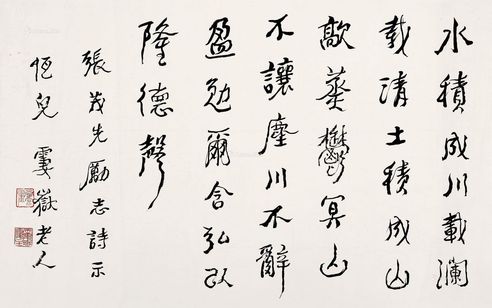 水積成川載瀾
載清土積成山
歊蒸鬱冥山
不讓塵川不辭
盈勉爾含弘以
隆德聲
張茂先勵志詩示
恆兒 嶽老人